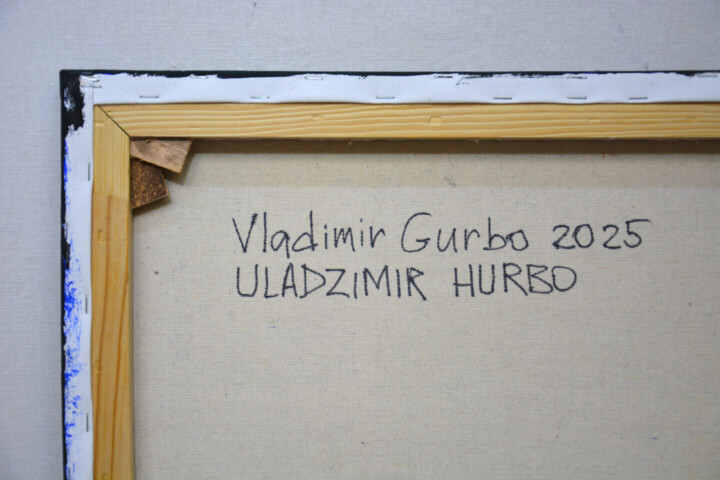 Vladimir Gurbo 2025
ULADZIMIR HURBO